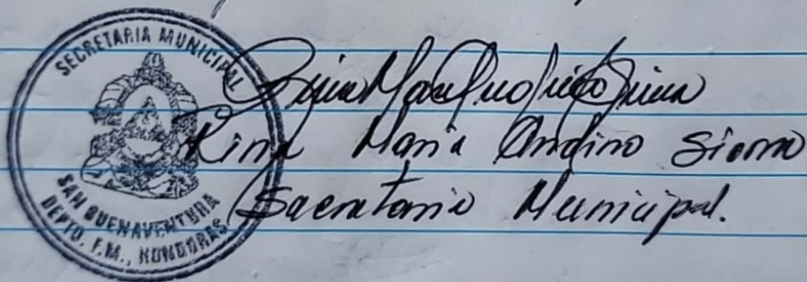 SECRETARIA MUNICIPAL
SAN BUENAVENTURA
DEPTO. F.M., HONDURAS
Rina Maria Andino Sierra
Secretaria Municipal.